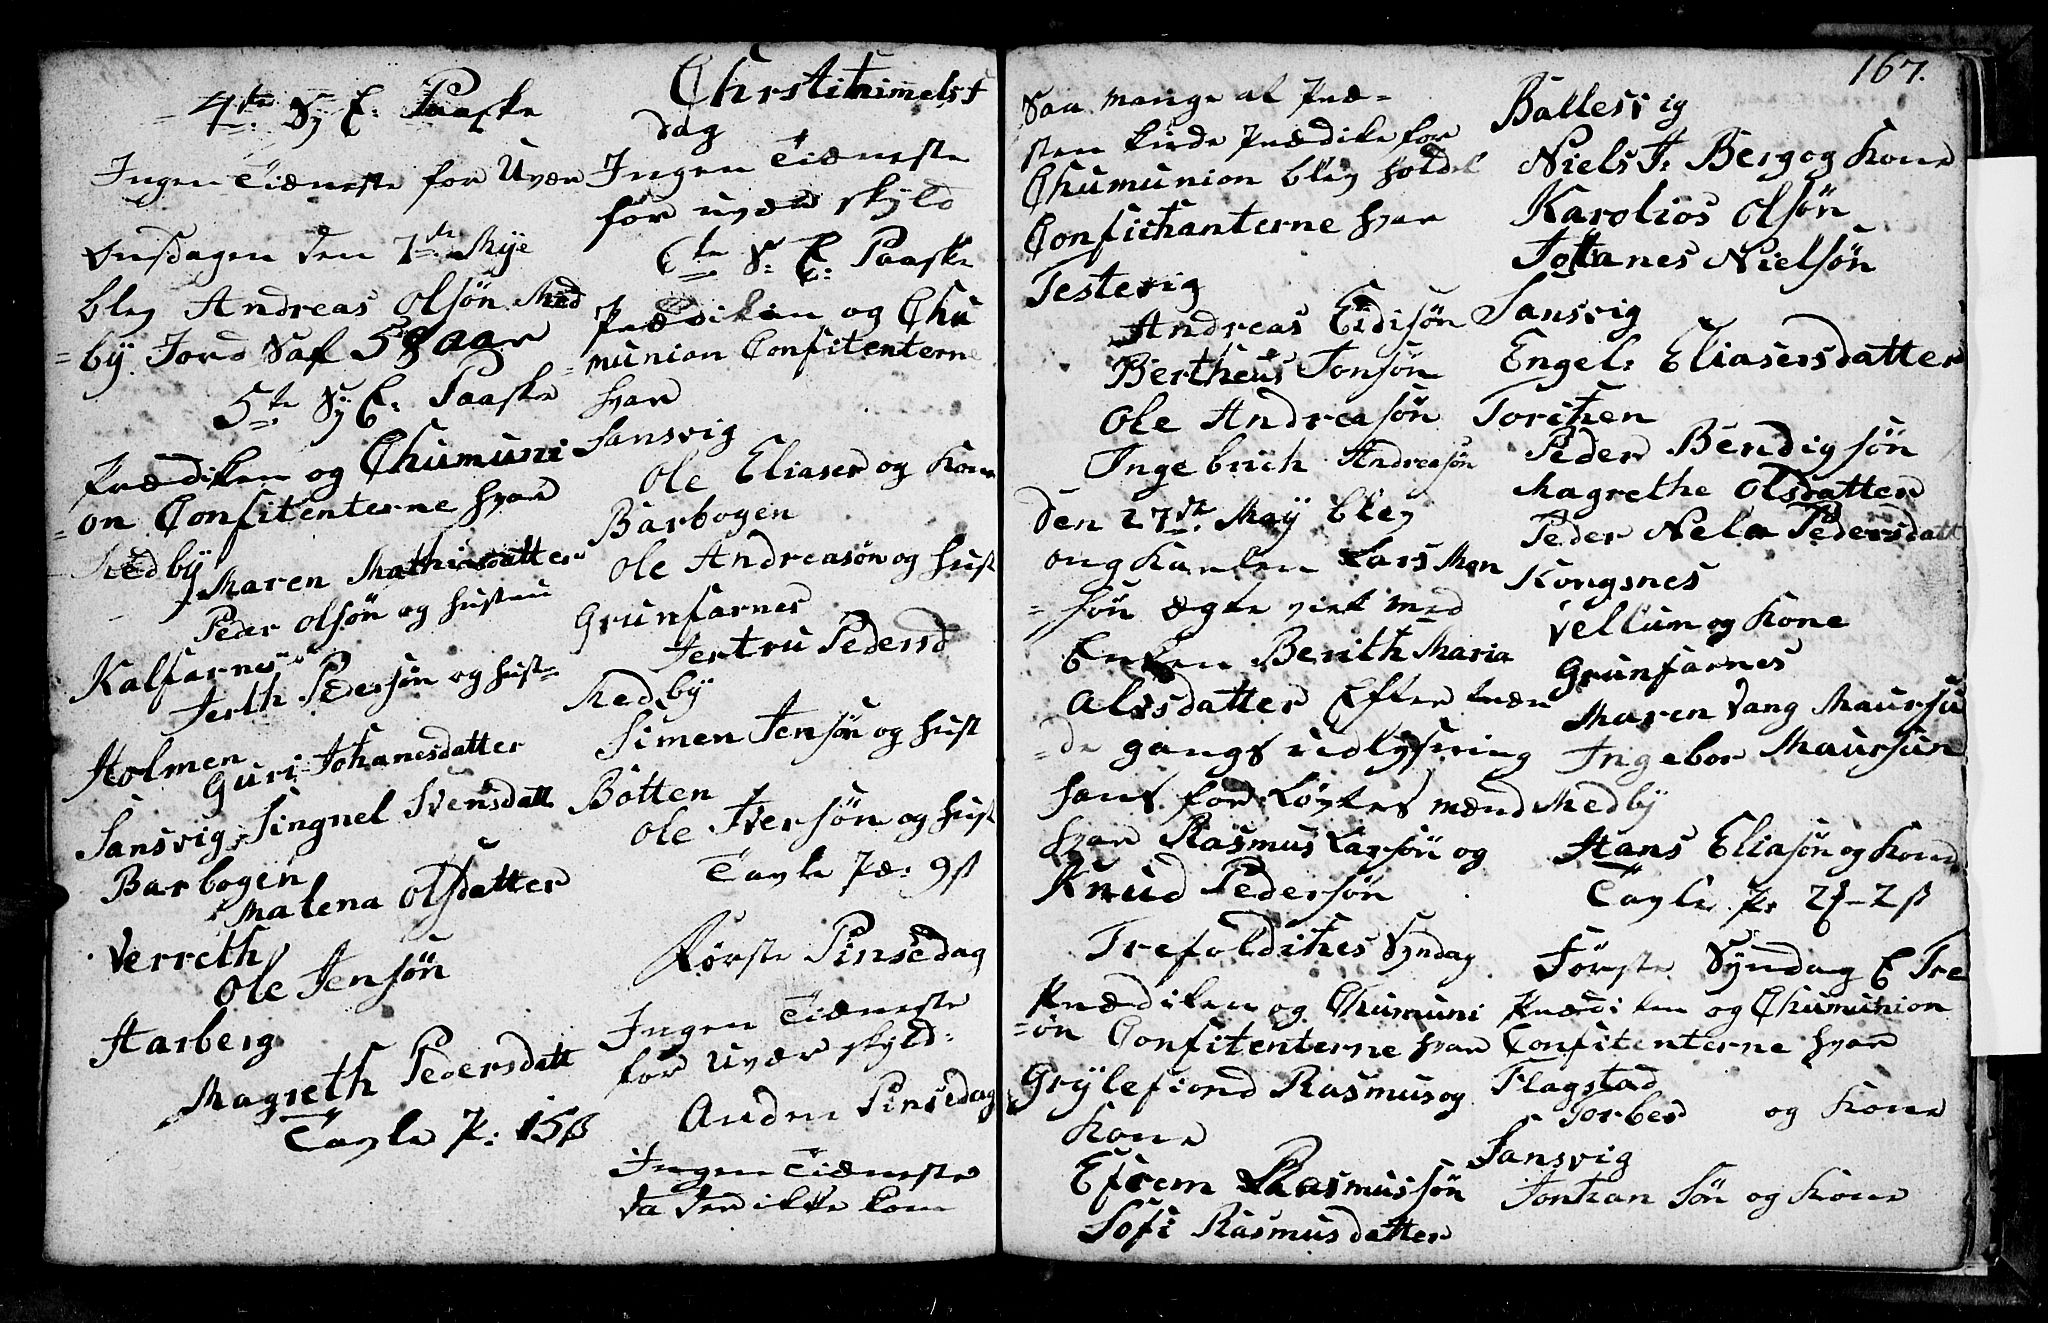 4te Sy E: Paaske
Ingen Tiæneste for Uvær
Onsdagen den 7de Mye
blev Andreas Olsøn Med
=by Jord Saf 58 aar
5te Sy E: Paaske
Prædiken og Chumuni
=on Confitenterne hvar
Medby
Maren Mathiasdatter
Peder Olsøn og hustru
Kalfarnes
Jerth Pedersøn og hust=
Holmen
Guri Johanesdatter
Sansvig Singnel Svensdatt
Barbogen
Malena Olsdatter
Verreth
Ole Jensøn
Aarberg
Magreth Pedersdatt
Tavle P: 15β
Chrstihimelsf
dag
Ingen Tiæneste
for uvær skyld
6te S: E: Paaske
Prædiken og Chu
=munion Confitenterne
hvar
Sansvig
Ole Eliaser og Kone
Barbogen
Ole Andreasøn og hust
Grunfarnes
Jertru Pedersd
Medby
Simen Jensøn og hust
Botten
Ole Iversøn og hust
Tavle Pæ: 9β
Første Pinsedag
Ingen Tiæneste
for Uvær skyld:
Anden Pinsedag
Ingen Tiæneste
da der ikke kom
167.
Saa mange at Præ=
sten kunde Prædike for
Chumunion blev holdet
Confichanterne hvar
Testevig
Andreas Eidisøn
Bertheus Jonsøn
Ole Andreasøn
Ingebrich Andreasøn
den 27de May blev
ongKarlen Lars Mon
=søn ægte viet med
Enken Berith Maria
Alsdatter Efter træn
=de gangs udlysning
hans forLøvles mænd
hvar Rasmus Larsøn og
Knud Pedersøn
Trefoldithes Syndag
Prædiken og Chumuni
=on Confitenterne hvar
Grylefiord Rasmus og
Kone
Efrem Raasmussøn
Sofi Rasmusdatter
Ballesvig
Niels J: Berg og Kone
Karolios Olsøn
Johanes Nielsøn
Sansvig
Engel: Eliasersdatter
Torithen
Peder Bendigsøn
Magrethe Olsdatter
Peder Nela Pedersdatt
Kongsnes
Vellum og Kone
Grunfarnes
Maren Vang Maursu
Ingebor Maursun
Medby
Hans Eliasøn og Kone
Tavle P: 2ƒ-2β
Første Syndag E Tre
Prædiken og Chumunion
Confitenterne hvar
Flagstad
Torber og Kone
Sansvig
Jonhan Søn og Kone